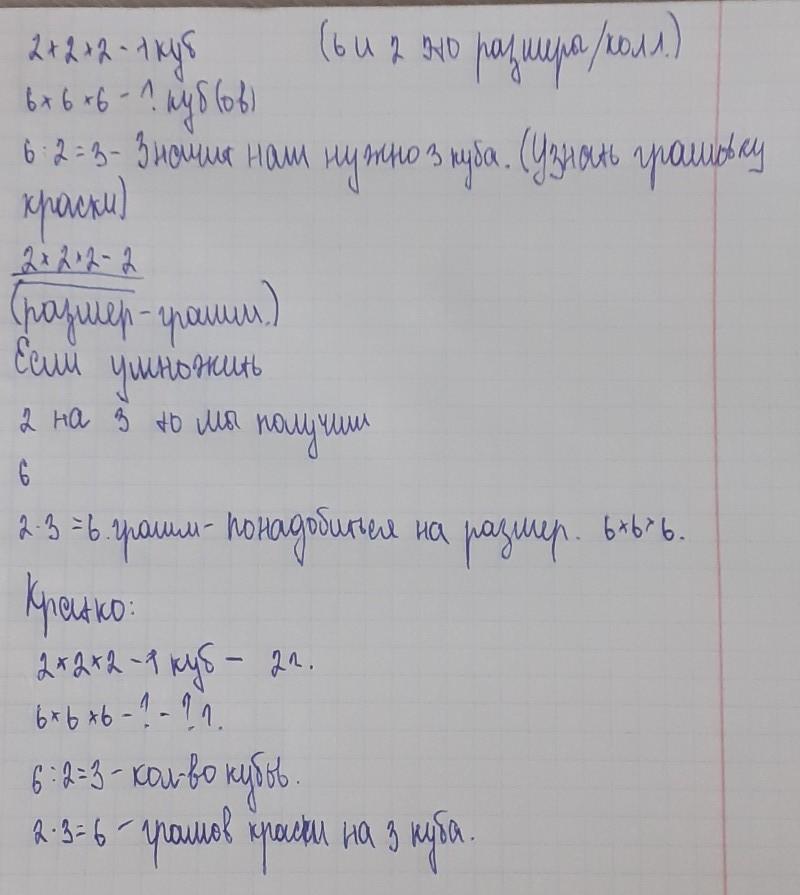 2×2×2 - 1 куб (6 и 2 это размеры/колл.)
6×6×6 - ? куб(ов)
6:2=3 - Значит нам нужно 3 куба. (Узнать грамовку
краски)
2×2×2 - 2
(размер - грамм.)
Если умножить
2 на 3 то мы получим
6
2·3=6. грамм - понадобиться на размер. 6×6×6.
Кратко:
2×2×2 - 1 куб - 2г.
6×6×6 - ? - ? г.
6:2=3 - кол-во кубов.
2·3=6 - грамов краски на 3 куба.